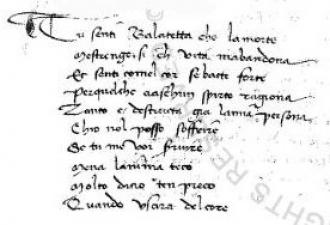 Tu senti Balatetta che lamorte
Mestrenge si ch vita mabandona
Et senti comel cor se batte forte
Per quel che ciaschun spirto ragiona
Tanto e destructa gia la mia persona
Chio nol posso soffrire
Se tu me voi servire
Mena lanima teco
Molto di cio ten preco
Quando uscira del core
RIGHTS RES